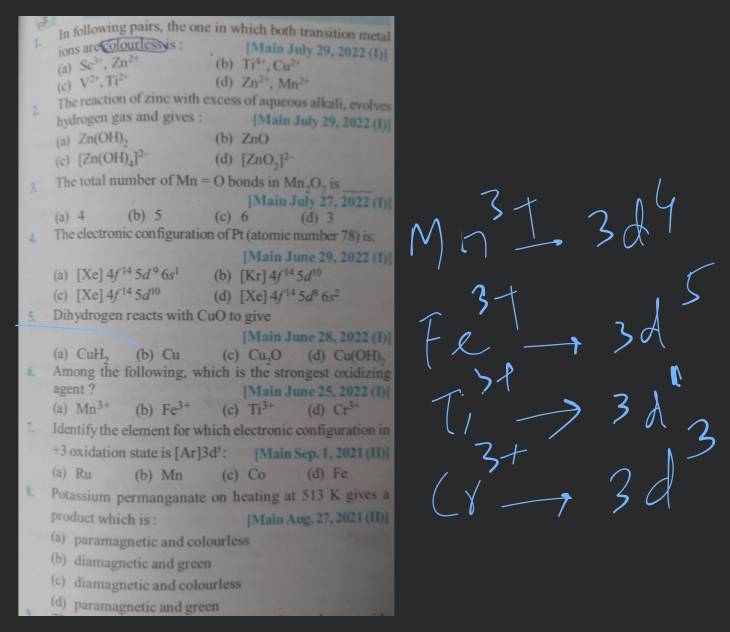 1. In following pairs, the one in which both transition metal
ions are colourless is :
[Main July 29, 2022 (I)]
(a) Sc³⁺, Zn²⁺ (b) Ti⁴⁺, Cu²⁺
(c) V²⁺, Ti³⁺ (d) Zn²⁺, Mn²⁺
2. The reaction of zinc with excess of aqueous alkali, evolves
hydrogen gas and gives : [Main July 29, 2022 (I)]
(a) Zn(OH)₂ (b) ZnO
(c) [Zn(OH)₄]²⁻ (d) [ZnO₂]²⁻
3. The total number of Mn = O bonds in Mn₂O₇ is ____
[Main July 27, 2022 (I)]
(a) 4 (b) 5 (c) 6 (d) 3
4. The electronic configuration of Pt (atomic number 78) is:
[Main June 29, 2022 (I)]
(a) [Xe] 4f¹⁴ 5d⁹ 6s¹ (b) [Kr] 4f¹⁴ 5d¹⁰
(c) [Xe] 4f¹⁴ 5d¹⁰ (d) [Xe] 4f¹⁴ 5d⁸ 6s²
5. Dihydrogen reacts with CuO to give
[Main June 28, 2022 (I)]
(a) CuH₂ (b) Cu (c) Cu₂O (d) Cu(OH)₂
6. Among the following, which is the strongest oxidizing
agent ? [Main June 25, 2022 (I)]
(a) Mn³⁺ (b) Fe³⁺ (c) Ti³⁺ (d) Cr³⁺
7. Identify the element for which electronic configuration in
+3 oxidation state is [Ar]3d⁵: [Main Sep. 1, 2021 (II)]
(a) Ru (b) Mn (c) Co (d) Fe
8. Potassium permanganate on heating at 513 K gives a
product which is : [Main Aug. 27, 2021 (II)]
(a) paramagnetic and colourless
(b) diamagnetic and green
(c) diamagnetic and colourless
(d) paramagnetic and green
Mn³⁺ → 3d⁴
Fe³⁺ → 3d⁵
Ti³⁺ → 3d¹
Cr³⁺ → 3d³